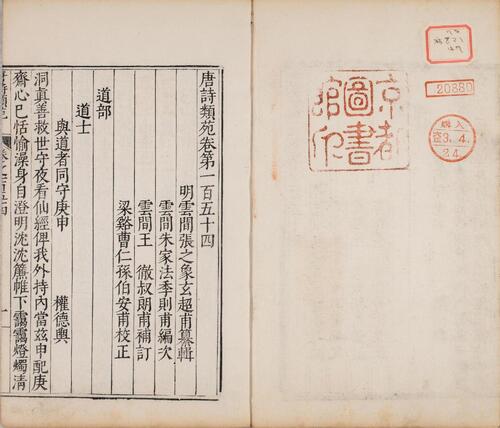 京都
圖書
館印
20880
購入
3.4.
24
唐詩類苑卷第一百五十四
明雲間張之象玄超甫纂輯
雲間朱家法季則甫編次
雲間王 徹叔朗甫補訂
梁谿曹仁孫伯安甫校正
道部
道士
與道者同守庚申 權德輿
洞眞善救世守夜看仙經俾我外持內當茲申配庚
齋心已恬愉澡身自澄明沈沈簾帷下靄靄燈燭清